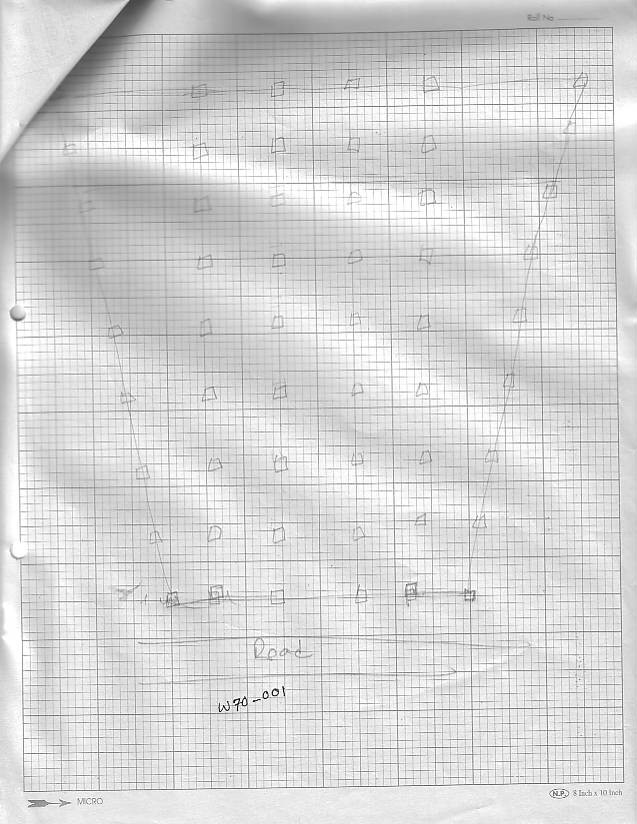 Roll No
Road
W70-001
MICRO
N.P. 8 Inch x 10 Inch